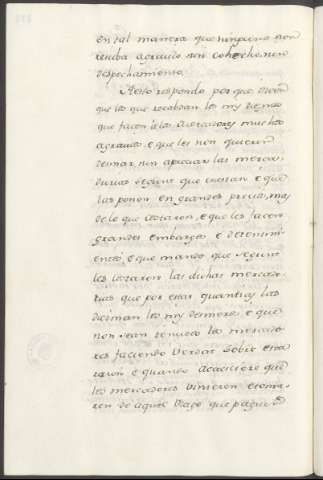 en tal manera que ninguno non
reciba agravio nin cohecho, nin
despechamiento
A esto respondo por que
que los que recabdan los mis diezmos
que facen á los Mercadores muchos
agravios e que les non quieren
dezmar, nin apreciar las merca-
durias segunt que cuestan e que
las ponen en grandes precios, mas
de lo que costaron, e que les facen
grandes embargos e detenimi-
entos, e que mando que segunt
les costaron las dichas mercado-
rias que por esas quantias las
diezman los mis dezmeros e que
non sean tenudos los mercado-
res faciendo verdat sobre esta
razon e quando acaesciere que
los mercadores vinieren e
ren de aquel viage que paguen